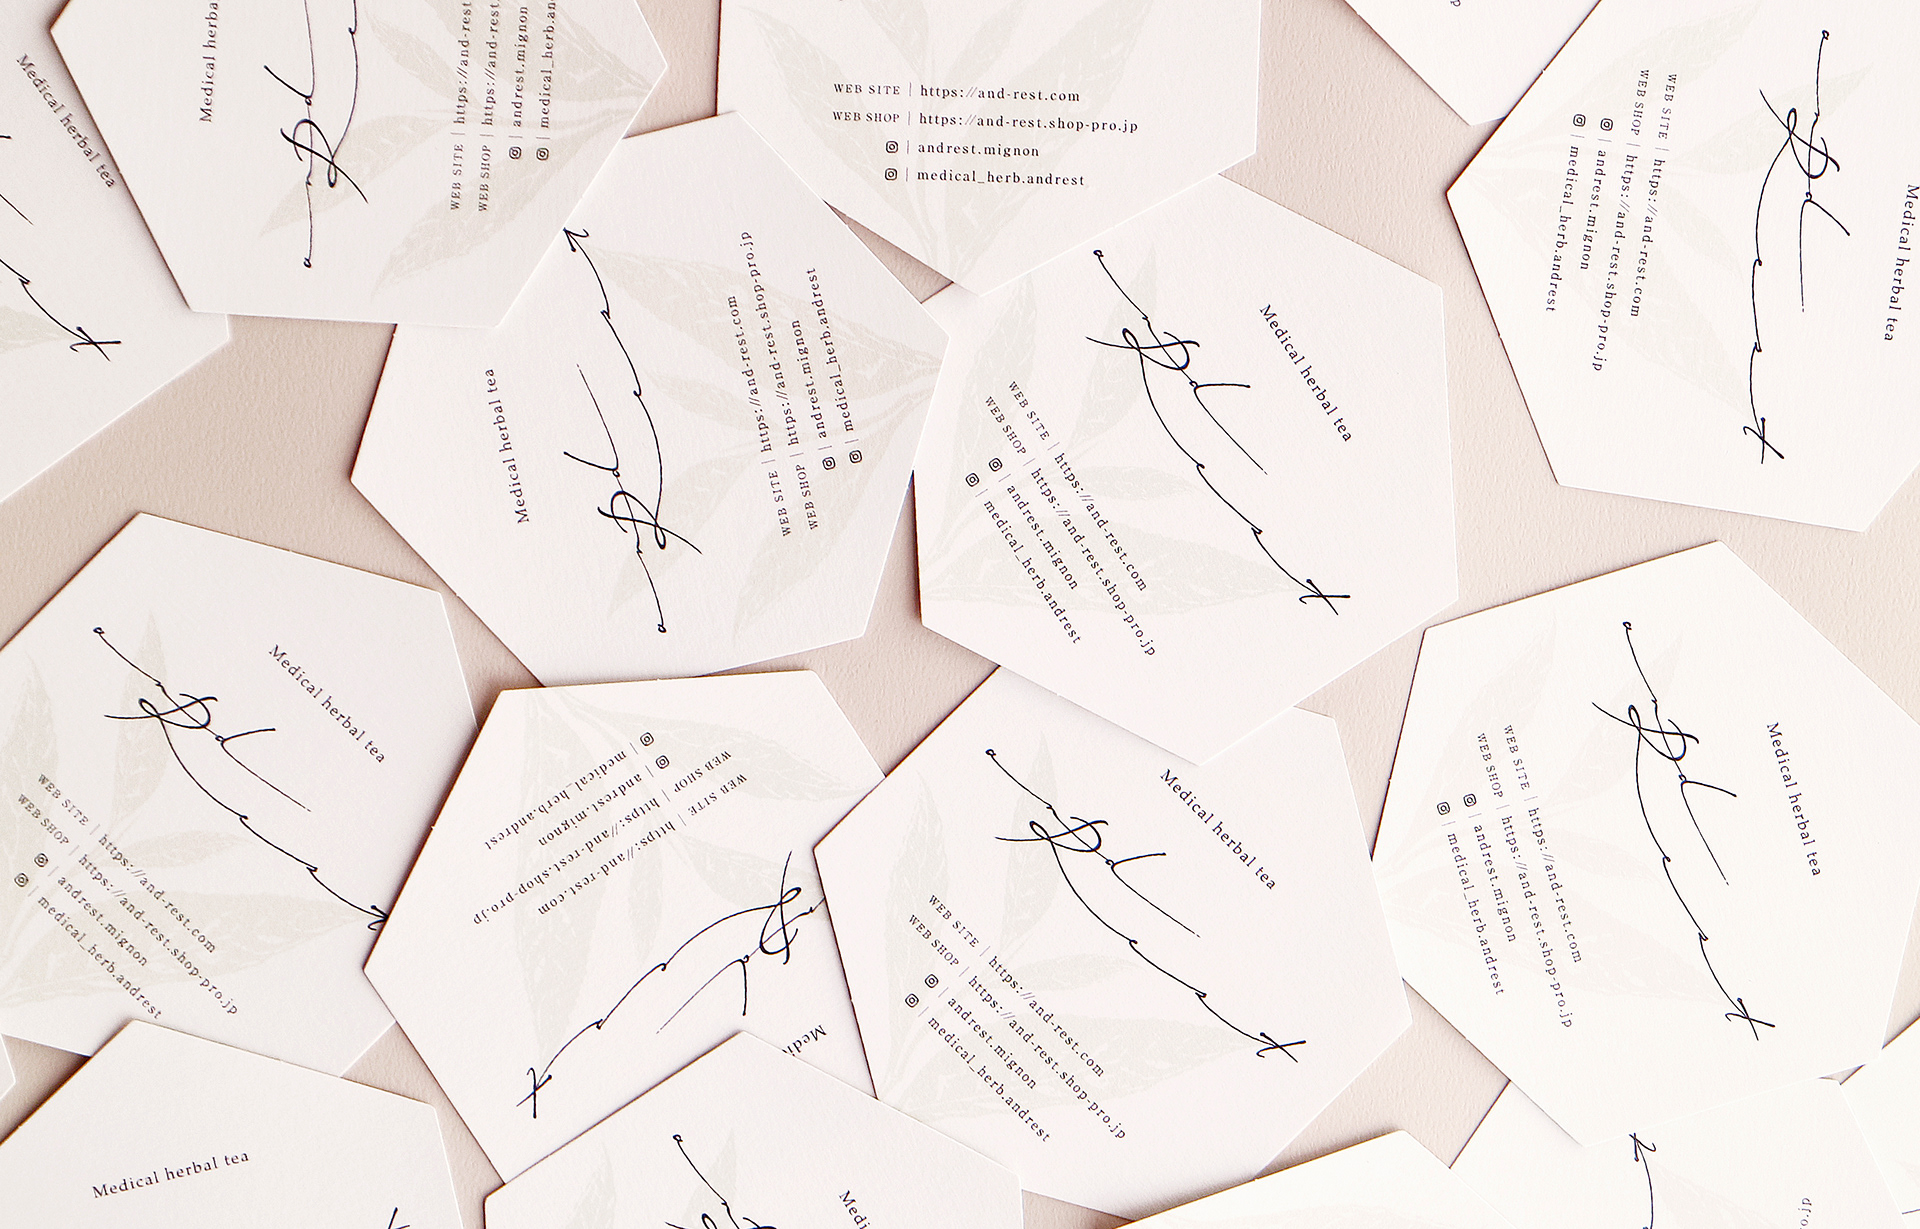 Medical herbal tea
Medical herba
and
WEB SITE | https://and-rest
WEB SHOP | https://and-rest
| andrest.mignon
| medical_herb.an
WEB SITE | https://and-rest.com
WEB SHOP | https://and-rest.shop-pro.jp
| andrest.mignon
| medical_herb.andrest
Medical herbal tea
and rest
WEB SITE | https://and-rest.com
WEB SHOP | https://and-rest.shop-pro.jp
| andrest.mignon
| medical_herb.andrest
Medical herbal tea
and rest
WEB SITE | https://and-rest.com
WEB SHOP | https://and-rest.shop-pro.jp
| andrest.mignon
| medical_herb.andrest
Medical herbal tea
and rest
WEB SITE | https://and-rest.com
WEB SHOP | https://and-rest.shop-pro.jp
| andrest.mignon
| medical_herb.andrest
Medical herbal tea
and rest
WEB SITE | https://and-rest.com
WEB SHOP | https://and-rest.shop-pro.jp
| andrest.mignon
| medical_herb.andrest
Medi
and rest
WEB SITE | https://and-rest.com
WEB SHOP | https://and-rest.shop-pro.jp
| andrest.mignon
| medical_herb.andrest
Medical herbal tea
and rest
WEB SITE | https://and-rest.com
WEB SHOP | https://and-rest.shop-pro.jp
| andrest.mignon
| medical_herb.andrest
Medical herbal tea
and rest
WEB SITE | https://and-rest.com
WEB SHOP | https://and-rest.shop-pro.jp
| andrest.mignon
| medical_herb.andrest
Medical herbal tea
Medic